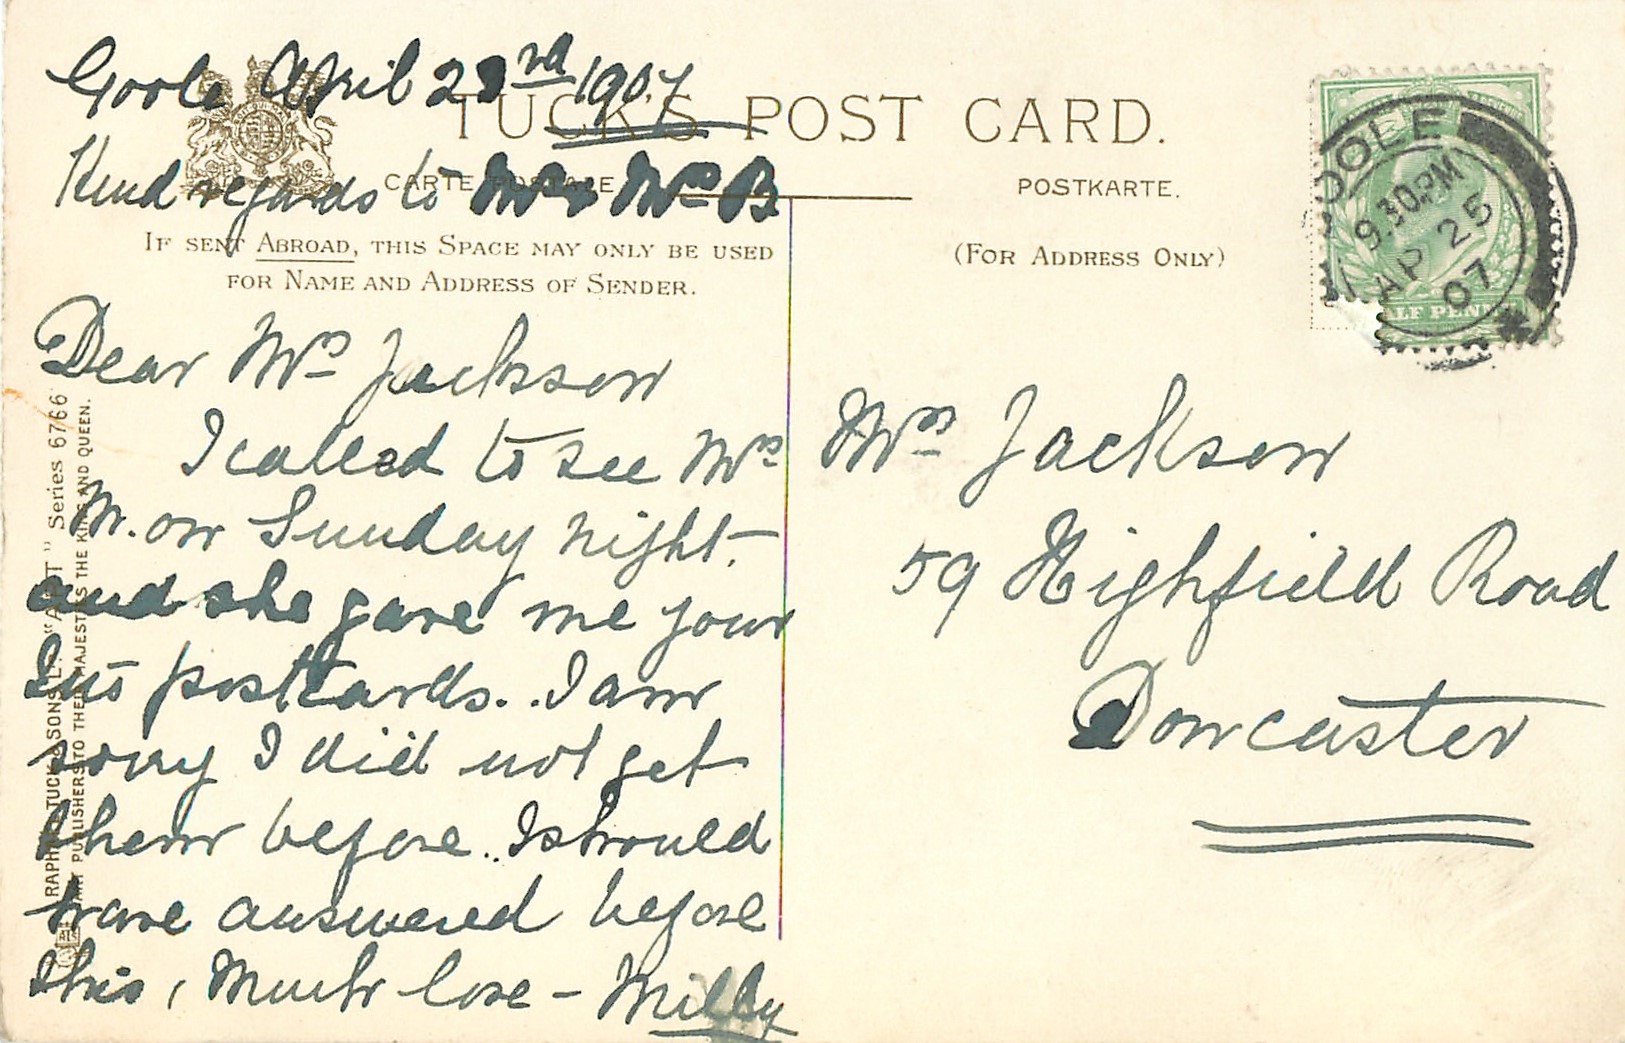 Goole April 23rd 1907
TUCK'S POST CARD.
Kind regards to Mr & Mrs B.
CARTE POSTALE
POSTKARTE.
IF SENT ABROAD, THIS SPACE MAY ONLY BE USED
FOR NAME AND ADDRESS OF SENDER.
(FOR ADDRESS ONLY)
Dear Mrs Jackson
I called to see Mrs
M. on Sunday night.
and she gave me your
postcards. I am
sorry I did not get
them before. I should
have answered before
this, Much love - Milly
Mrs Jackson
59 Highfield Road
Doncaster
GOOLE
9.30PM
AP 25
07
HALF PENNY
RAPHAEL TUCK & SONS LD. "ART" Series 6766
ART PUBLISHERS TO THEIR MAJESTIES THE KING AND QUEEN.